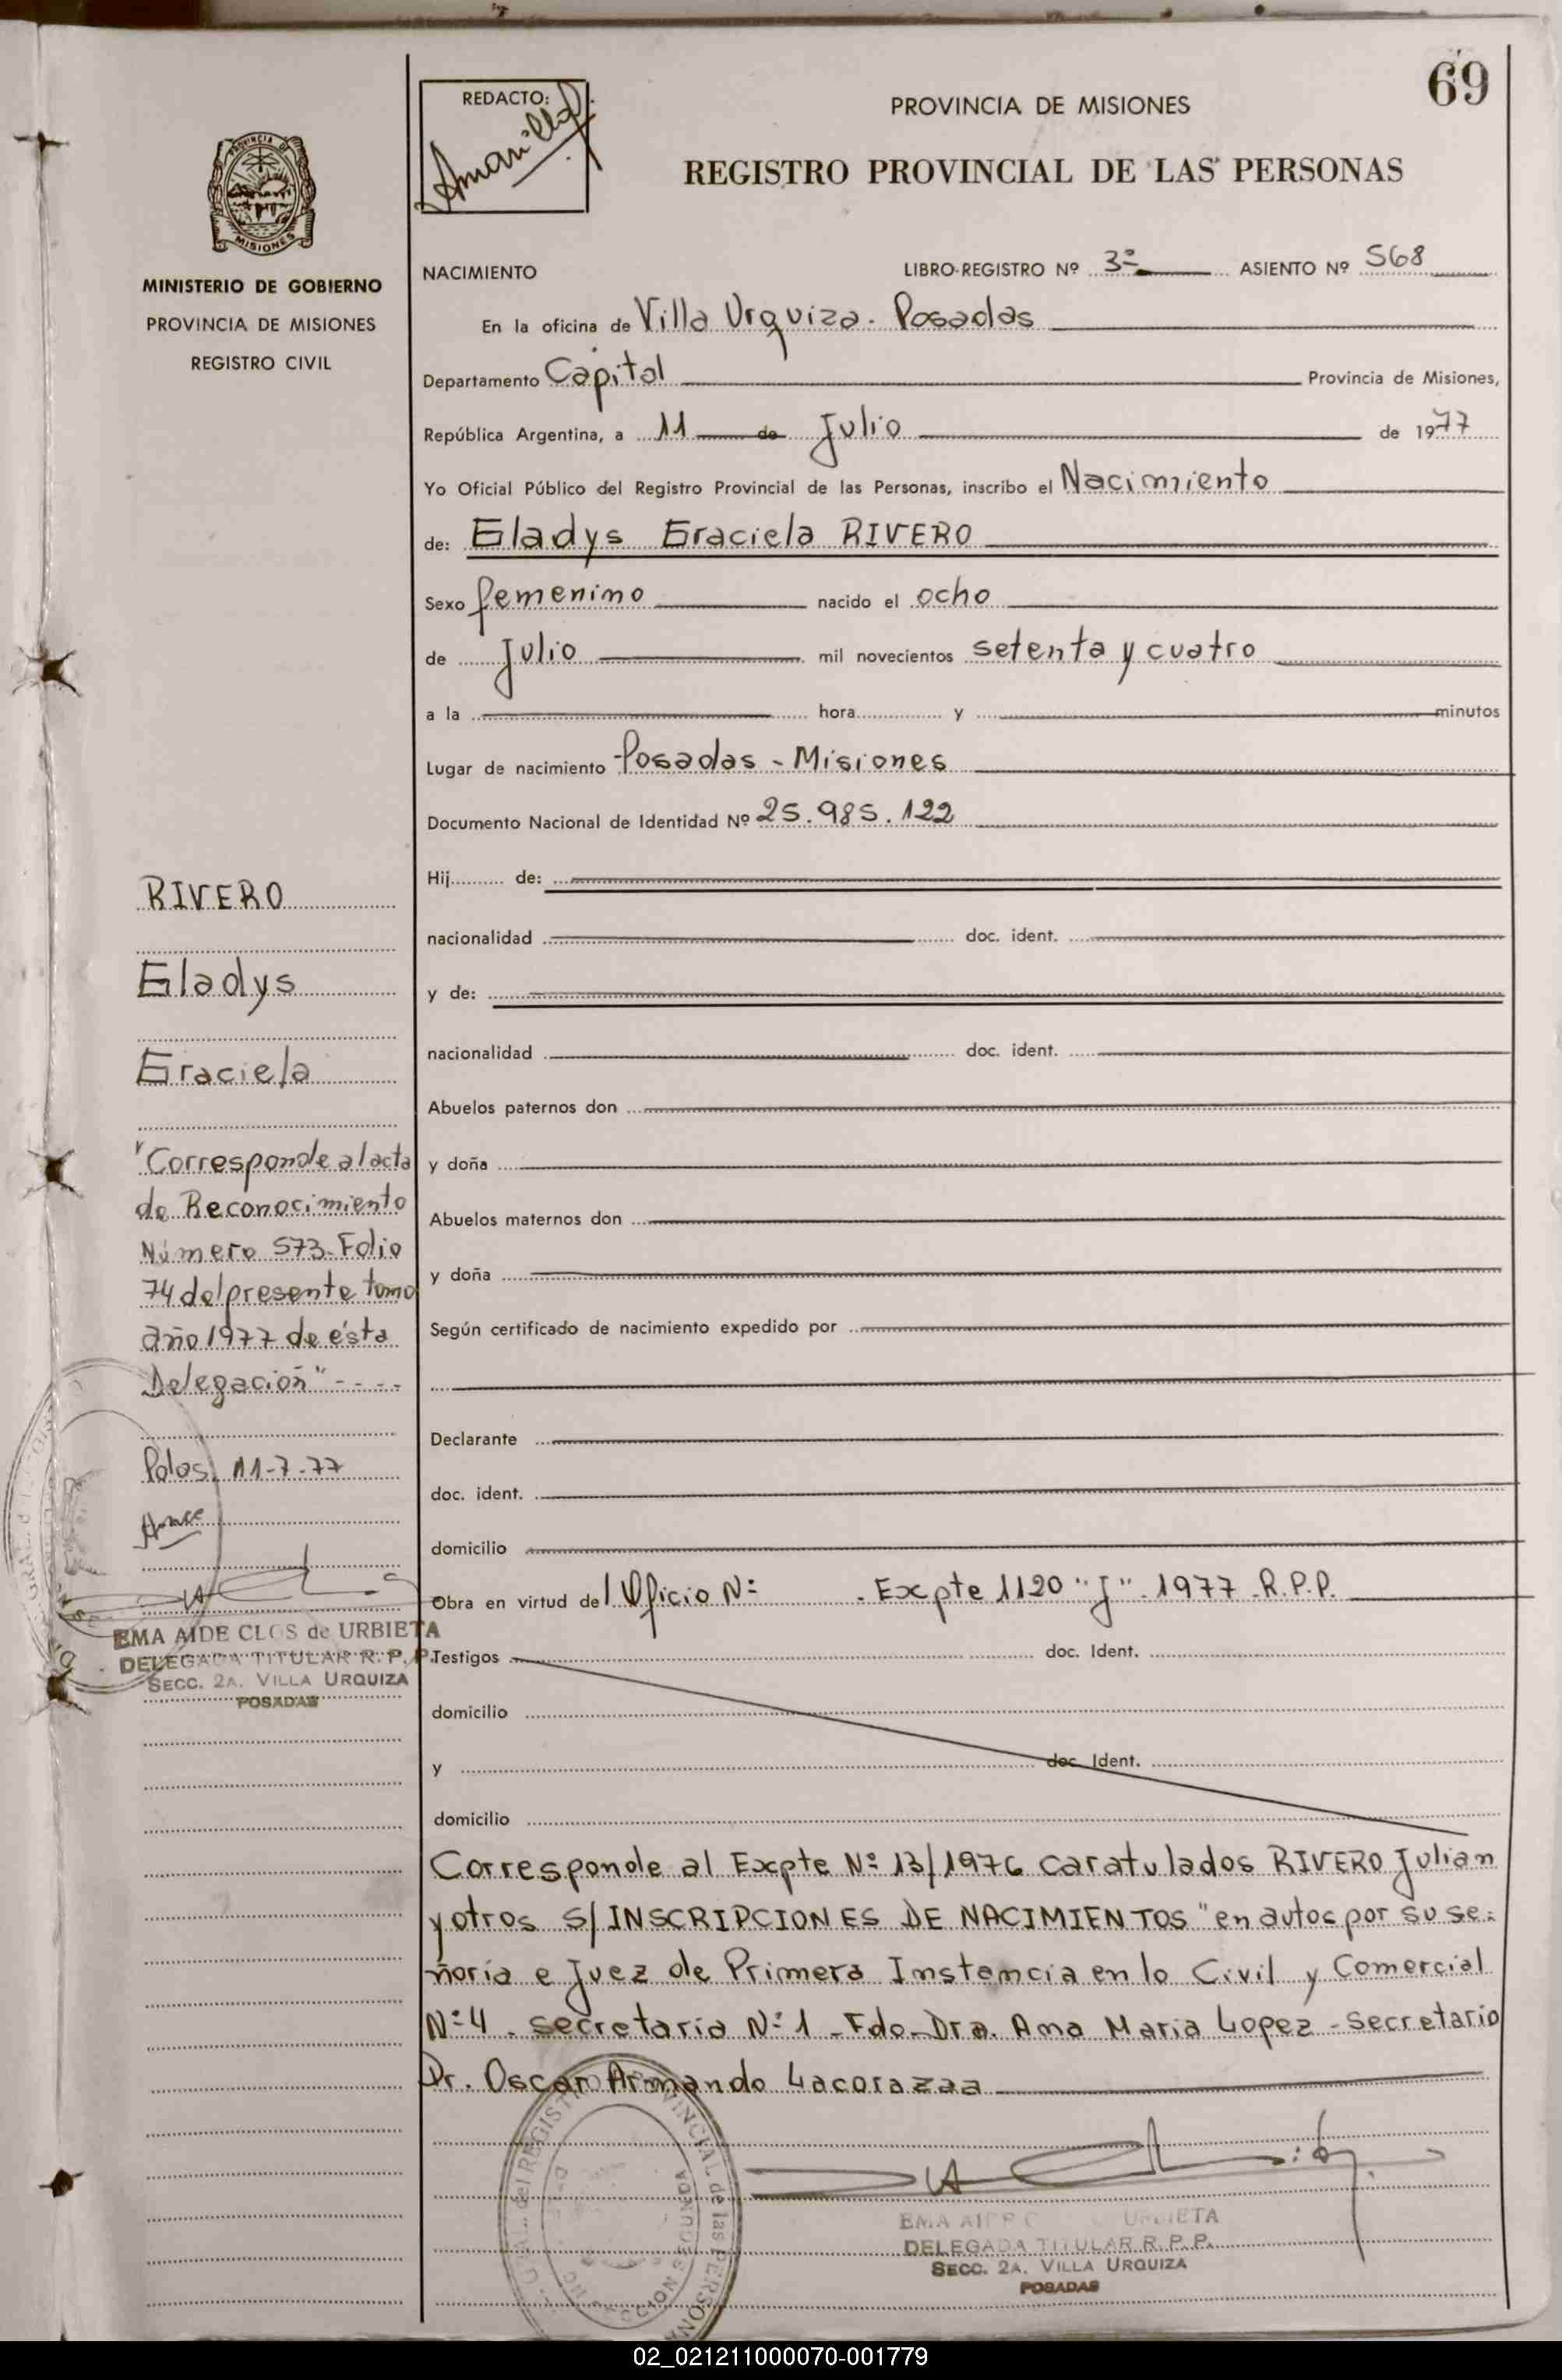 69
REDACTO:
PROVINCIA DE MISIONES
REGISTRO PROVINCIAL DE LAS PERSONAS
PROVINCIA DE
MISIONES
MINISTERIO DE GOBIERNO
PROVINCIA DE MISIONES
REGISTRO CIVIL
NACIMIENTO LIBRO-REGISTRO Nº 3º ASIENTO Nº 568
En la oficina de Villa Urquiza - Posadas
Departamento Capital Provincia de Misiones,
República Argentina, a 11 de Julio de 1977
Yo Oficial Público del Registro Provincial de las Personas, inscribo el Nacimiento
de: Gladys Graciela RIVERO
Sexo femenino nacido el ocho
de Julio mil novecientos setenta y cuatro
a la hora y minutos
Lugar de nacimiento Posadas - Misiones
Documento Nacional de Identidad Nº 25.985.122
Hij de:
nacionalidad doc. ident.
y de:
nacionalidad doc. ident.
Abuelos paternos don
y doña
Abuelos maternos don
y doña
Según certificado de nacimiento expedido por
Declarante
doc. ident.
domicilio
Obra en virtud del Oficio Nº . Expte 1120 "J" . 1977 - R.P.P.
Testigos doc. Ident.
domicilio
y doc. Ident.
domicilio
Corresponde al Expte Nº 13/1976 caratulados RIVERO Julian
y otros S/ INSCRIPCIONES DE NACIMIENTOS" en autos por su se-
ñoría e Juez de Primera Instancia en lo Civil y Comercial
Nº 4 - Secretaría Nº 1 - Fdo - Dra. Ana Maria Lopez - Secretario
Dr. Oscar Armando Lacorazaa
RIVERO
Gladys
Graciela
"Corresponde al acta
de Reconocimiento
Número 573 - Folio
74 del presente tomo
año 1977 de ésta
Delegación" - - - -
Pdas. 11-7-77
EMA AIDE CLOS de URBIETA
DELEGADA TITULAR R. P. P.
SECC. 2A. VILLA URQUIZA
POSADAS
del REGISTRO PROVINCIAL de las PERSONAS
EMA AIDE URBIETA
DELEGADA TITULAR R. P. P.
SECC. 2A. VILLA URQUIZA
POSADAS
02_021211000070-001779